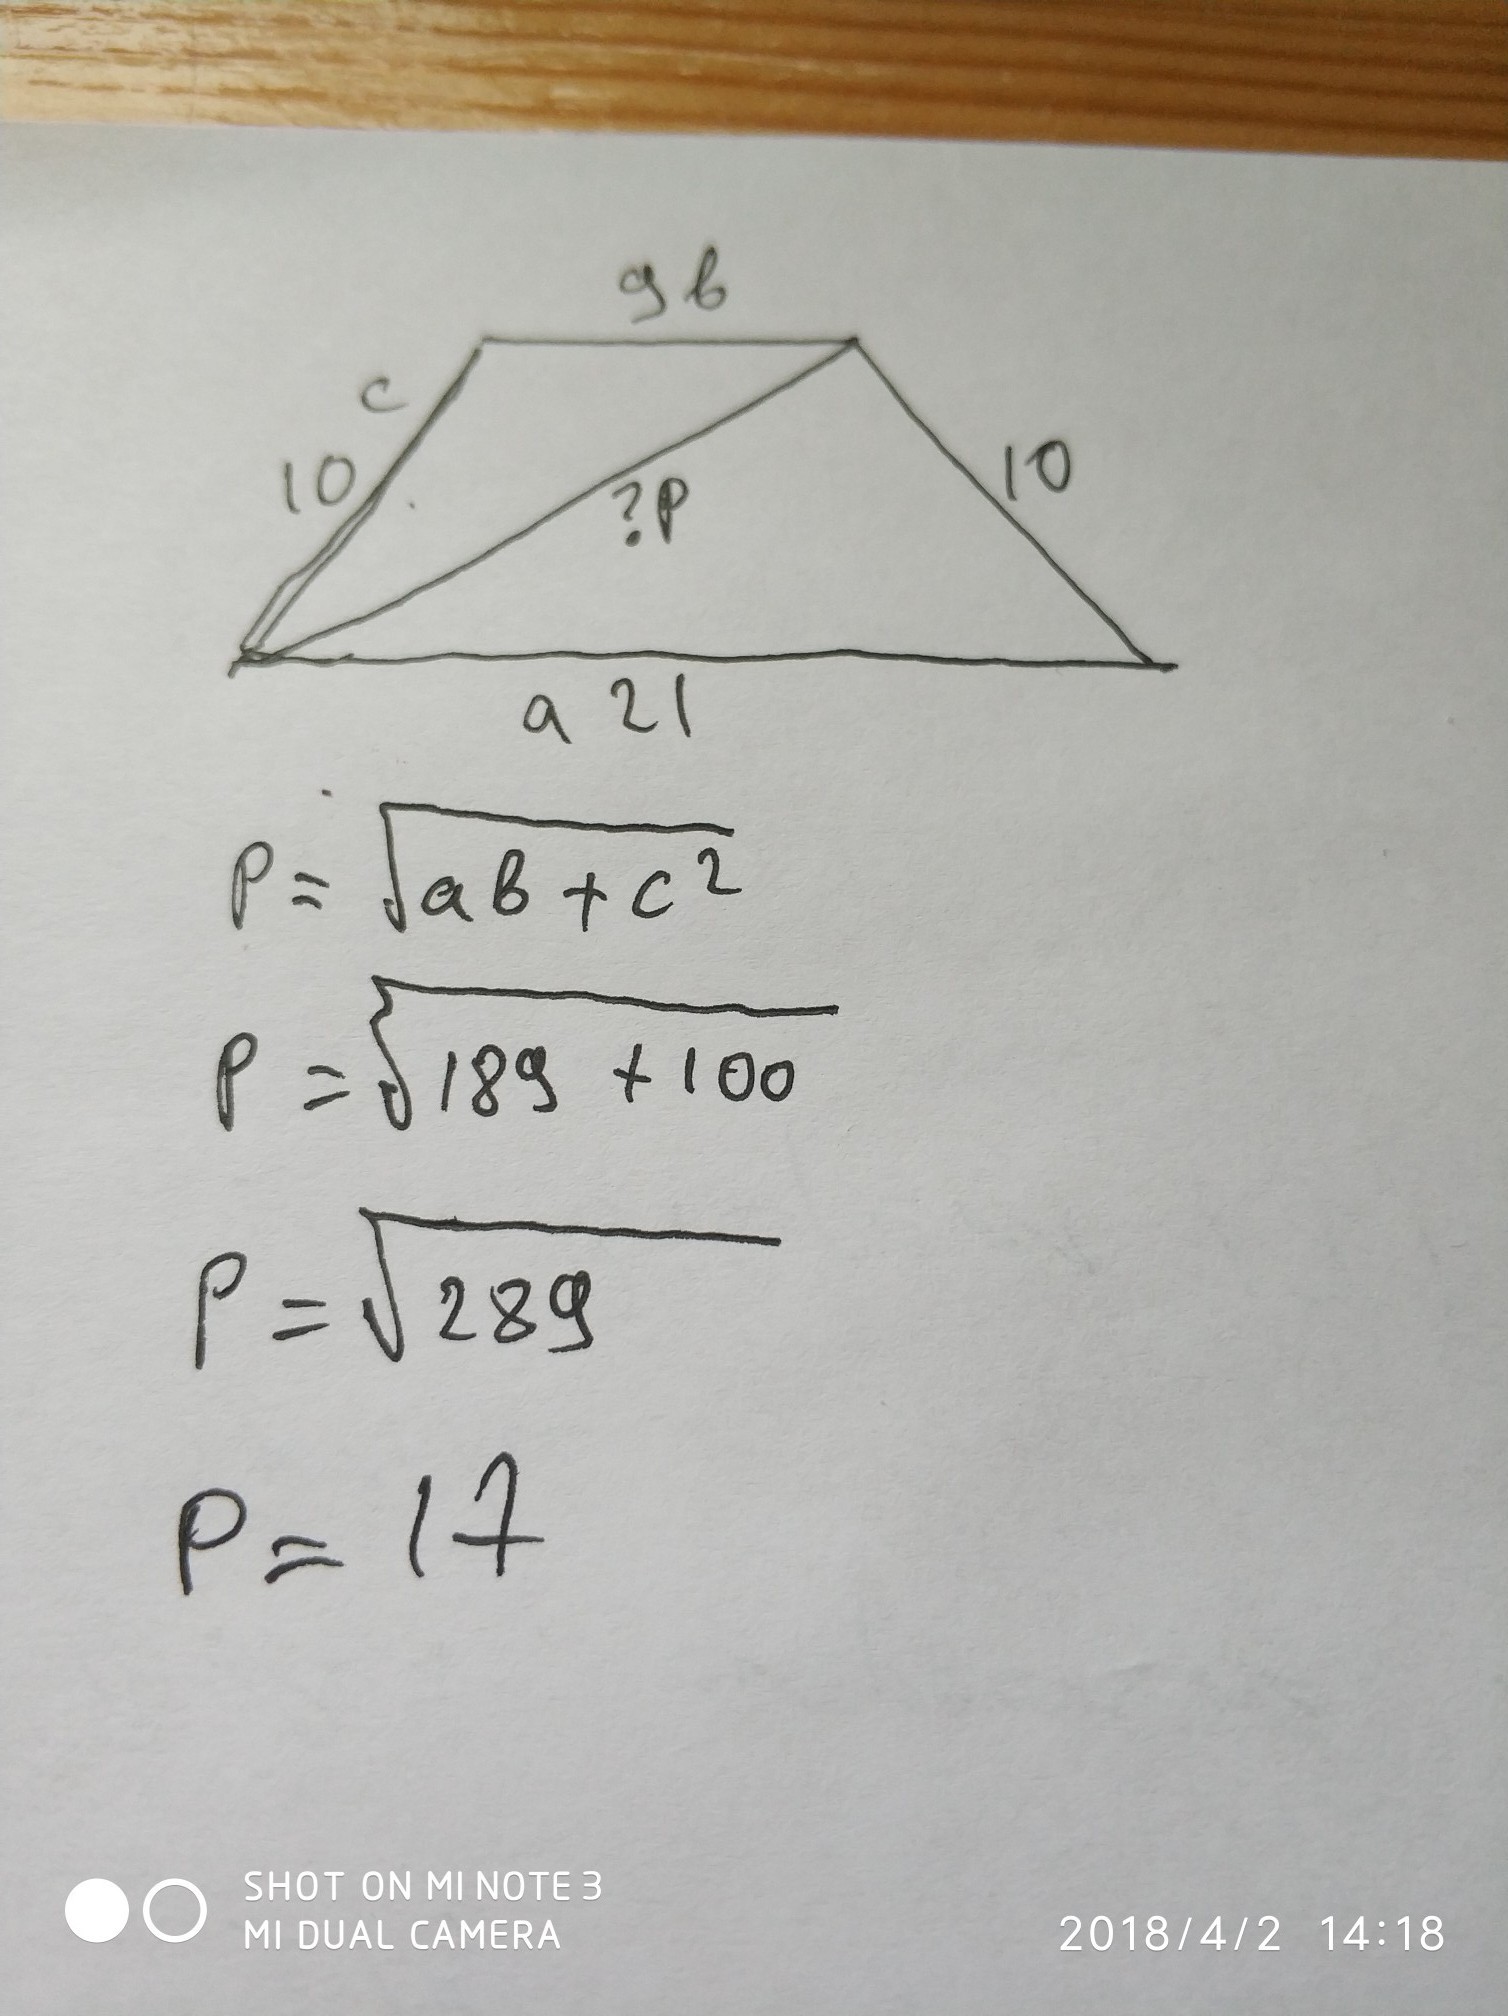 9 b
c
10
10
?P
a 21
P = √ab + c²
P = √189 + 100
P = √289
P = 17
SHOT ON MI NOTE 3
MI DUAL CAMERA
2018/4/2 14:18